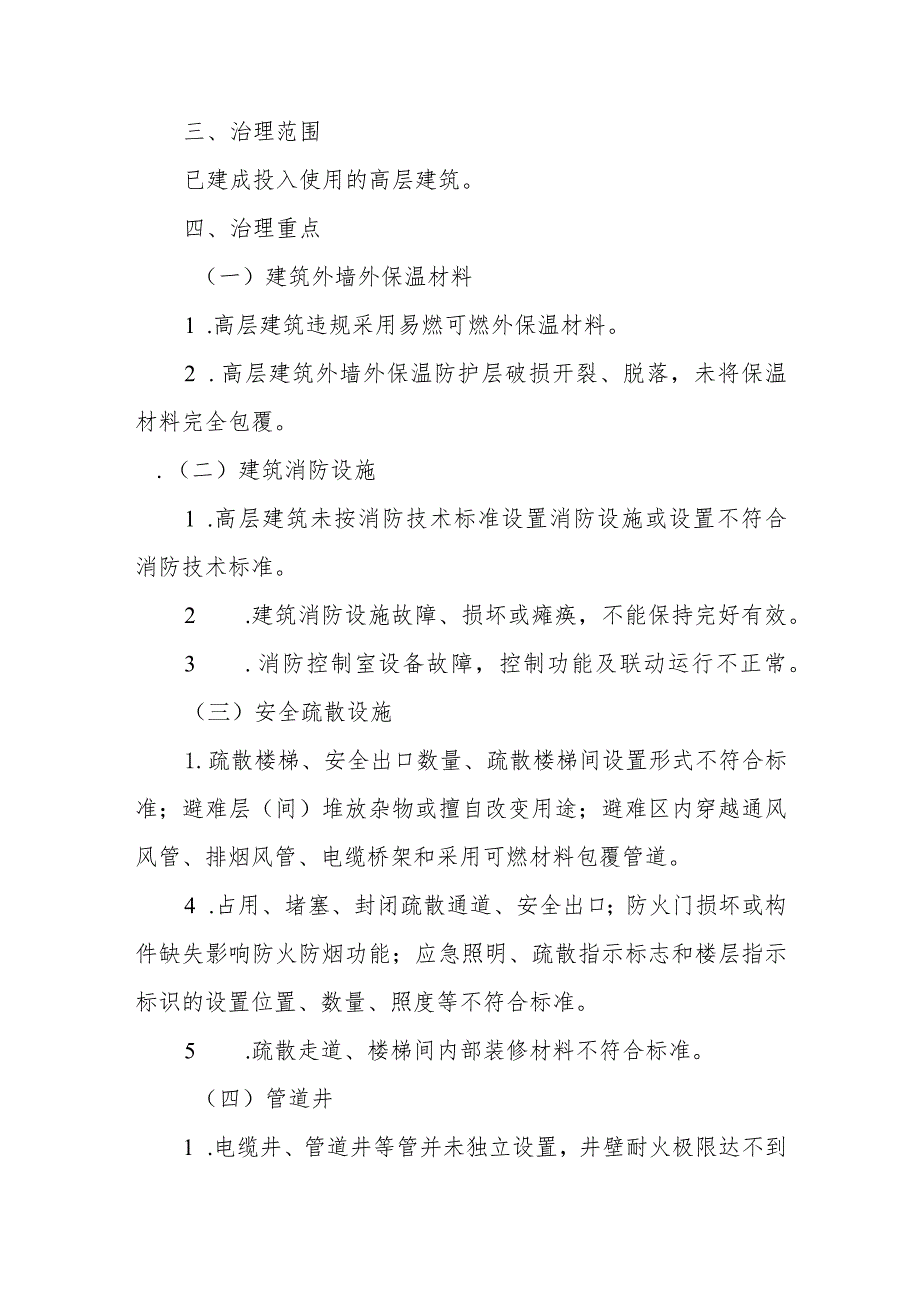 三、治理范围
已建成投入使用的高层建筑。
四、治理重点
（一）建筑外墙外保温材料
1 .高层建筑违规采用易燃可燃外保温材料。
2 .高层建筑外墙外保温防护层破损开裂、脱落，未将保温
材料完全包覆。
.（二）建筑消防设施
1 .高层建筑未按消防技术标准设置消防设施或设置不符合
消防技术标准。
2 .建筑消防设施故障、损坏或瘫痪，不能保持完好有效。
3 .消防控制室设备故障，控制功能及联动运行不正常。
（三）安全疏散设施
1.疏散楼梯、安全出口数量、疏散楼梯间设置形式不符合标
准；避难层（间）堆放杂物或擅自改变用途；避难区内穿越通风
风管、排烟风管、电缆桥架和采用可燃材料包覆管道。
4 .占用、堵塞、封闭疏散通道、安全出口；防火门损坏或构
件缺失影响防火防烟功能；应急照明、疏散指示标志和楼层指示
标识的设置位置、数量、照度等不符合标准。
5 .疏散走道、楼梯间内部装修材料不符合标准。
（四）管道井
1 .电缆井、管道井等管并未独立设置，井壁耐火极限达不到